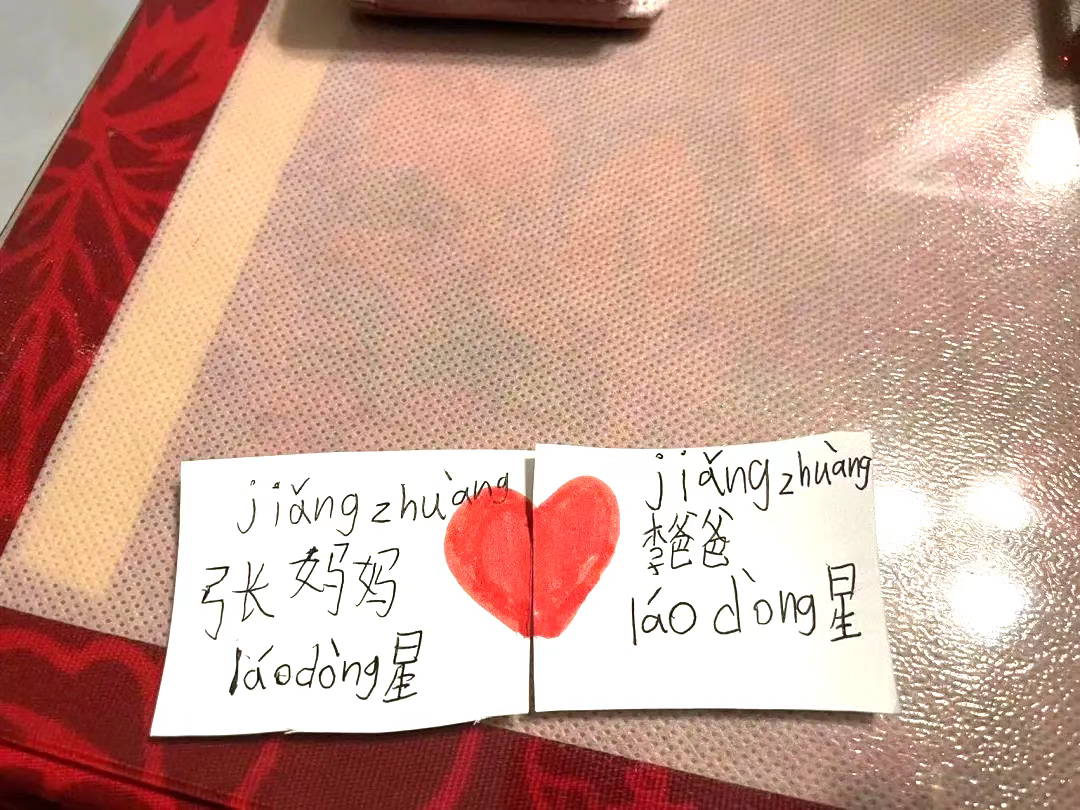 jiǎng zhuàng
张妈妈
láodòng星
jiǎng zhuàng
李爸爸
láo dòng星